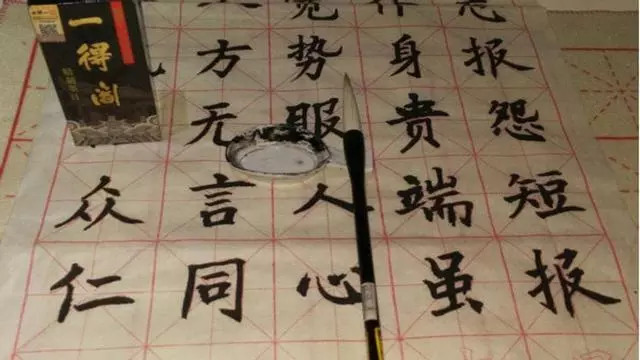 报怨短报
身贵端虽
宽势服人心
方无言同
众仁
一得阁